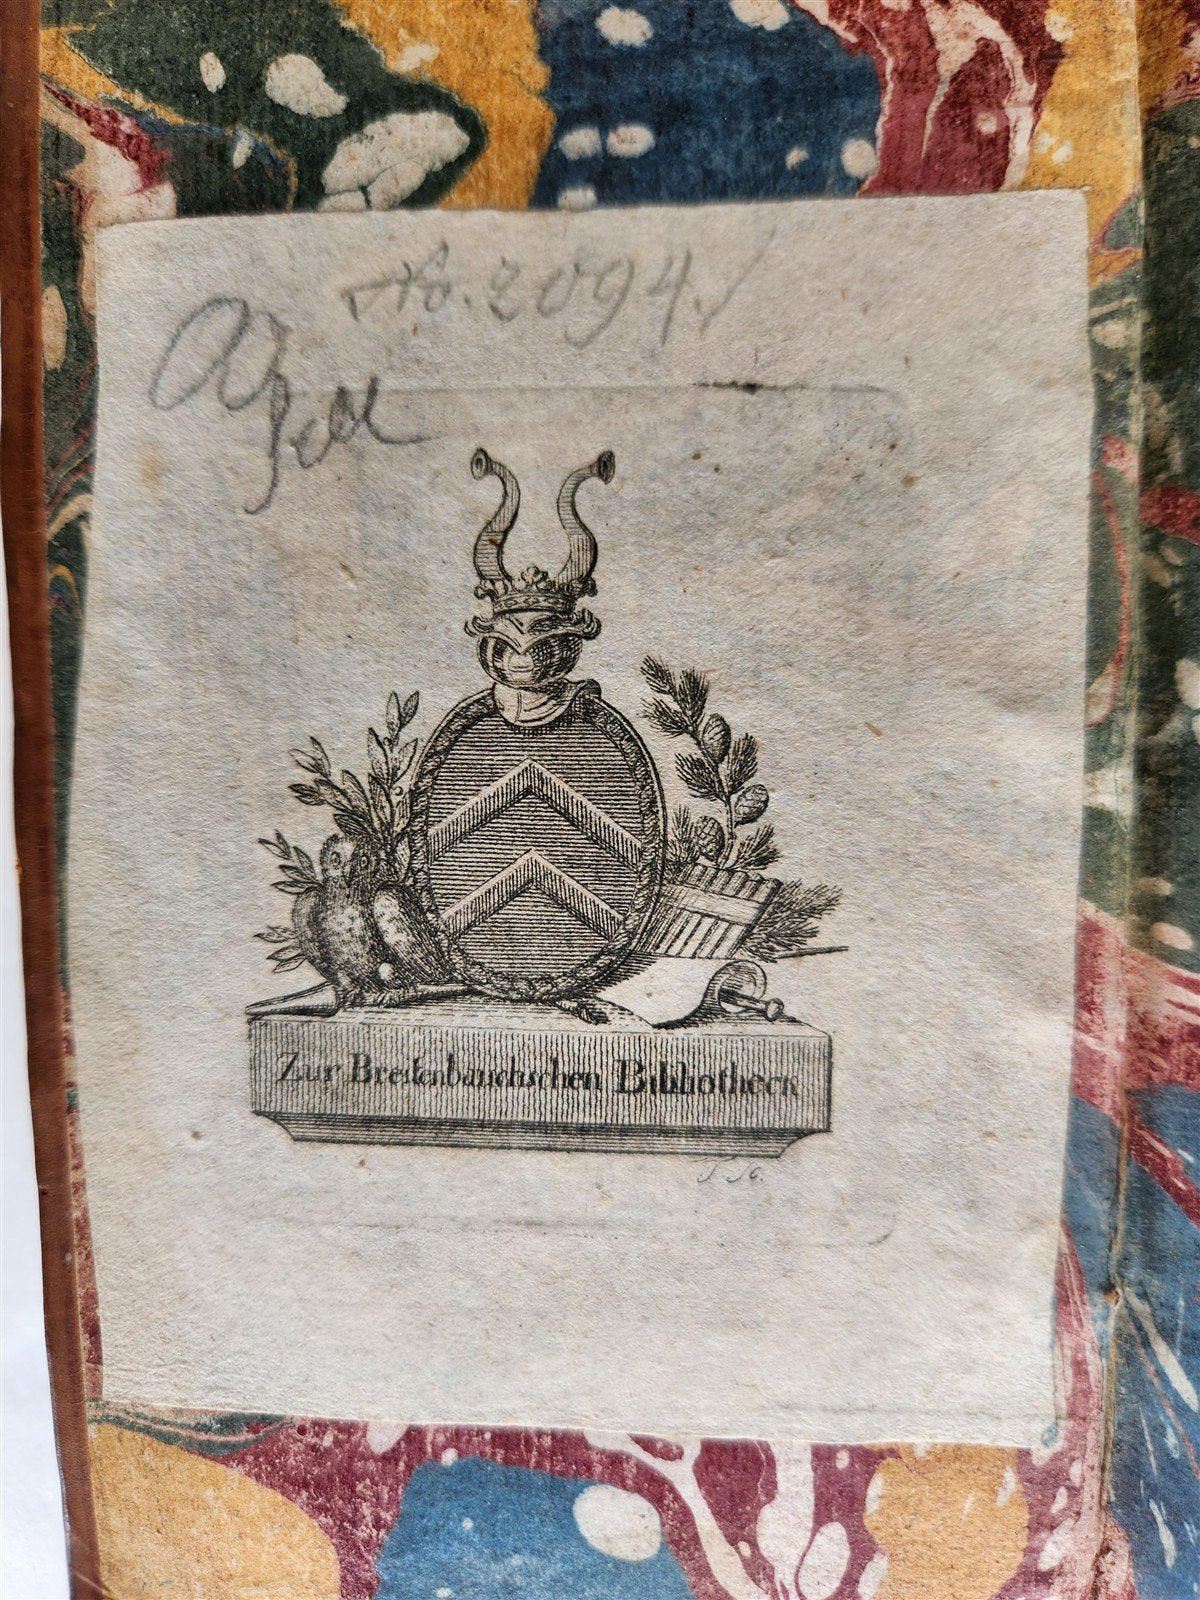 No. 2094.
Zur Breitenbauchschen Bibliotheck